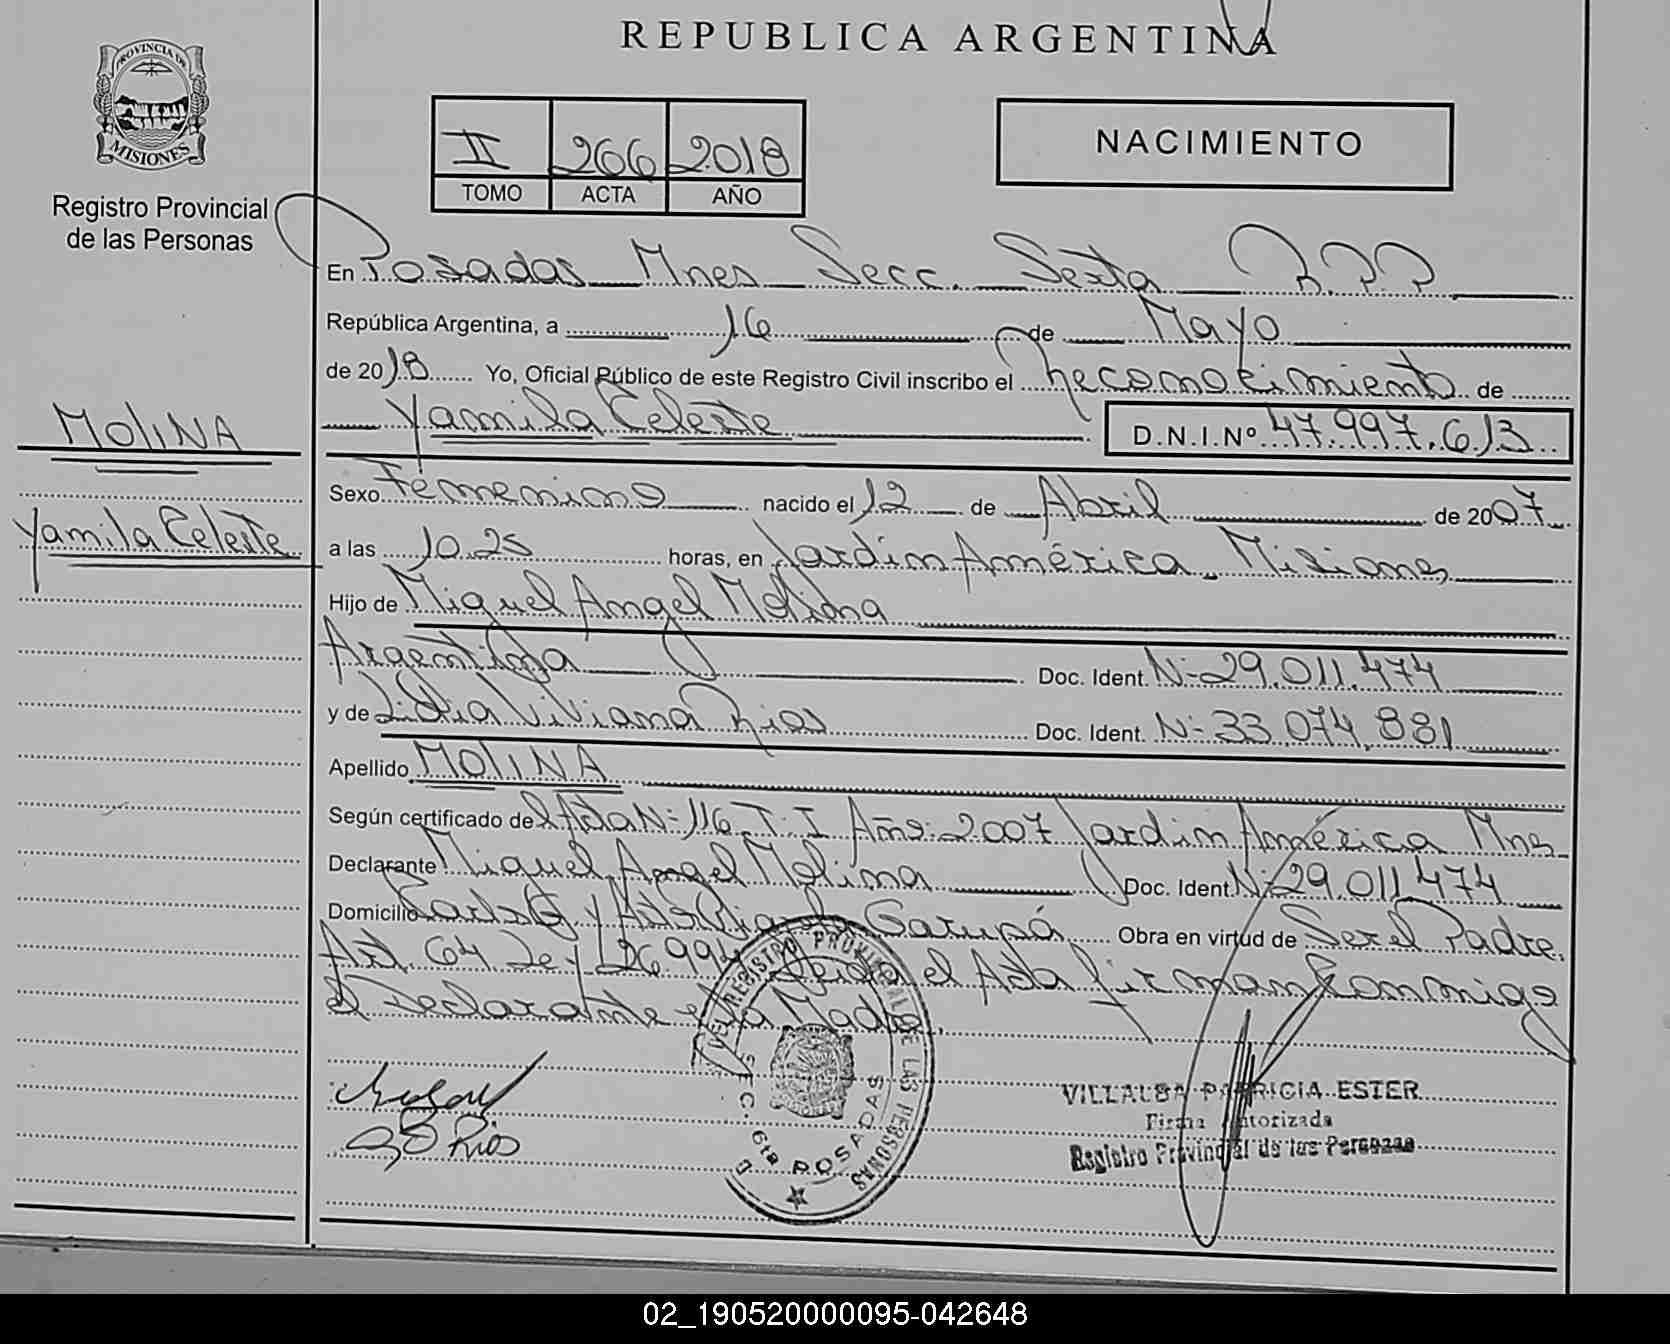 REPUBLICA ARGENTINA
PROVINCIA DE
MISIONES
Registro Provincial
de las Personas
II 266 2018
TOMO ACTA AÑO
NACIMIENTO
En Posadas Mnes Secc. Sexta R.P.P
República Argentina, a 16 de Mayo
de 2018 Yo, Oficial Público de este Registro Civil inscribo el reconocimiento de
Yamila Celeste D.N.I.Nº 47.997.613
MOLINA
Yamila Celeste
Sexo Femenino nacido el 12 de Abril de 2007
a las 10.25 horas, en Jardin América Misiones
Hijo de Miguel Angel Molina
Argentina Doc. Ident. Nº 29.011.474
y de Lidia Viviana Rios Doc. Ident. Nº 33.074.881
Apellido MOLINA
Según certificado del Acta Nº 116 T. I Año 2007 Jardin América Mnes
Declarante Miguel Angel Molina Doc. Ident. Nº 29.011.474
Domicilio y Garupá Obra en virtud de Ser el Padre.
Art. 64 Ley 26994 Leida el Acta firman conmigo
el Declarante y la Madre.
DEL REGISTRO PROVINCIAL DE LAS PERSONAS
SEC. 6ta POSADAS
Rios
VILLALBA PATRICIA ESTER
Firma Autorizada
Registro Provincial de las Personas
02_190520000095-042648